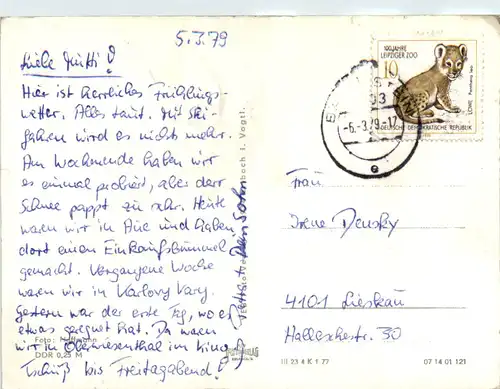 5.3.79
Liebe Mutti!
Hier ist herrliches Frühlings-
wetter. Alles taut. Mit Ski-
fahren wird es nichts mehr.
Am Wochenende haben wir
es einmal probiert, aber der
Schnee pappt zu sehr. Heute
waren wir in Aue und haben
dort einen Einkaufsbummel
gemacht. Vergangene Woche
waren wir in Karlovy Vary.
Gestern war der erste Tag, wo es
etwas geregnet hat. Da waren
wir in Oberwiesenthal im Kino.
Tschüß bis Freitagabend!
Dein Sohn
Foto:
DDR 0,25 M
bach i. Vogtl.
100 JAHRE
LEIPZIGER ZOO
10
LÖWE
DEUTSCHE DEMOKRATISCHE REPUBLIK
-6.-3.79-17
Frau
Irene Densky
4101 Lieskau
Halleschestr. 30
III 23 4 K 1 77
07 14 01 121